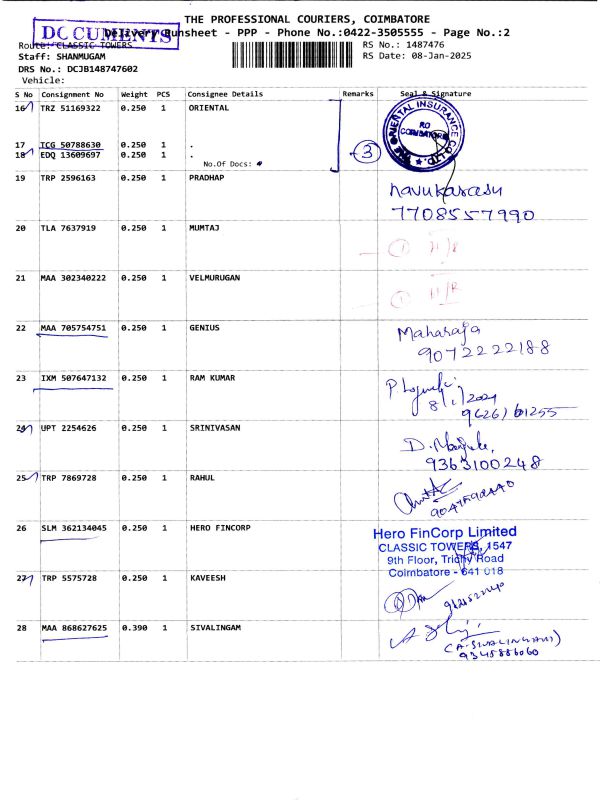 THE PROFESSIONAL COURIERS, COIMBATORE
DOCUMENTS
Delivery Runsheet - PPP - Phone No.:0422-3505555 - Page No.:2
Route: CLASSIC TOWERS
RS No.: 1487476
Staff: SHANMUGAM
RS Date: 08-Jan-2025
DRS No.: DCJB148747602
Vehicle:
S No Consignment No Weight PCS Consignee Details Remarks Seal & Signature
16 TRZ 51169322 0.250 1 ORIENTAL
ORIENTAL INSURANCE CO. LTD.
RO
COIMBATORE
17 TCG 50788630 0.250 1 .
18 EDQ 13609697 0.250 1 .
3
No.Of Docs:
19 TRP 2596163 0.250 1 PRADHAP
navukarasu
7708557990
20 TLA 7637919 0.250 1 MUMTAJ
1
21 MAA 302340222 0.250 1 VELMURUGAN
1
22 MAA 705754751 0.250 1 GENIUS
Maharaja
9072222188
23 IXM 507647132 0.250 1 RAM KUMAR
24 UPT 2254626 0.250 1 SRINIVASAN
9363100248
25 TRP 7869728 0.250 1 RAHUL
26 SLM 362134045 0.250 1 HERO FINCORP
Hero FinCorp Limited
CLASSIC TOWERS, 1547
9th Floor, Trichy Road
Coimbatore - 641 018
27 TRP 5575728 0.250 1 KAVEESH
28 MAA 868627625 0.390 1 SIVALINGAM
(A.SIVALINGAM)
9345886060